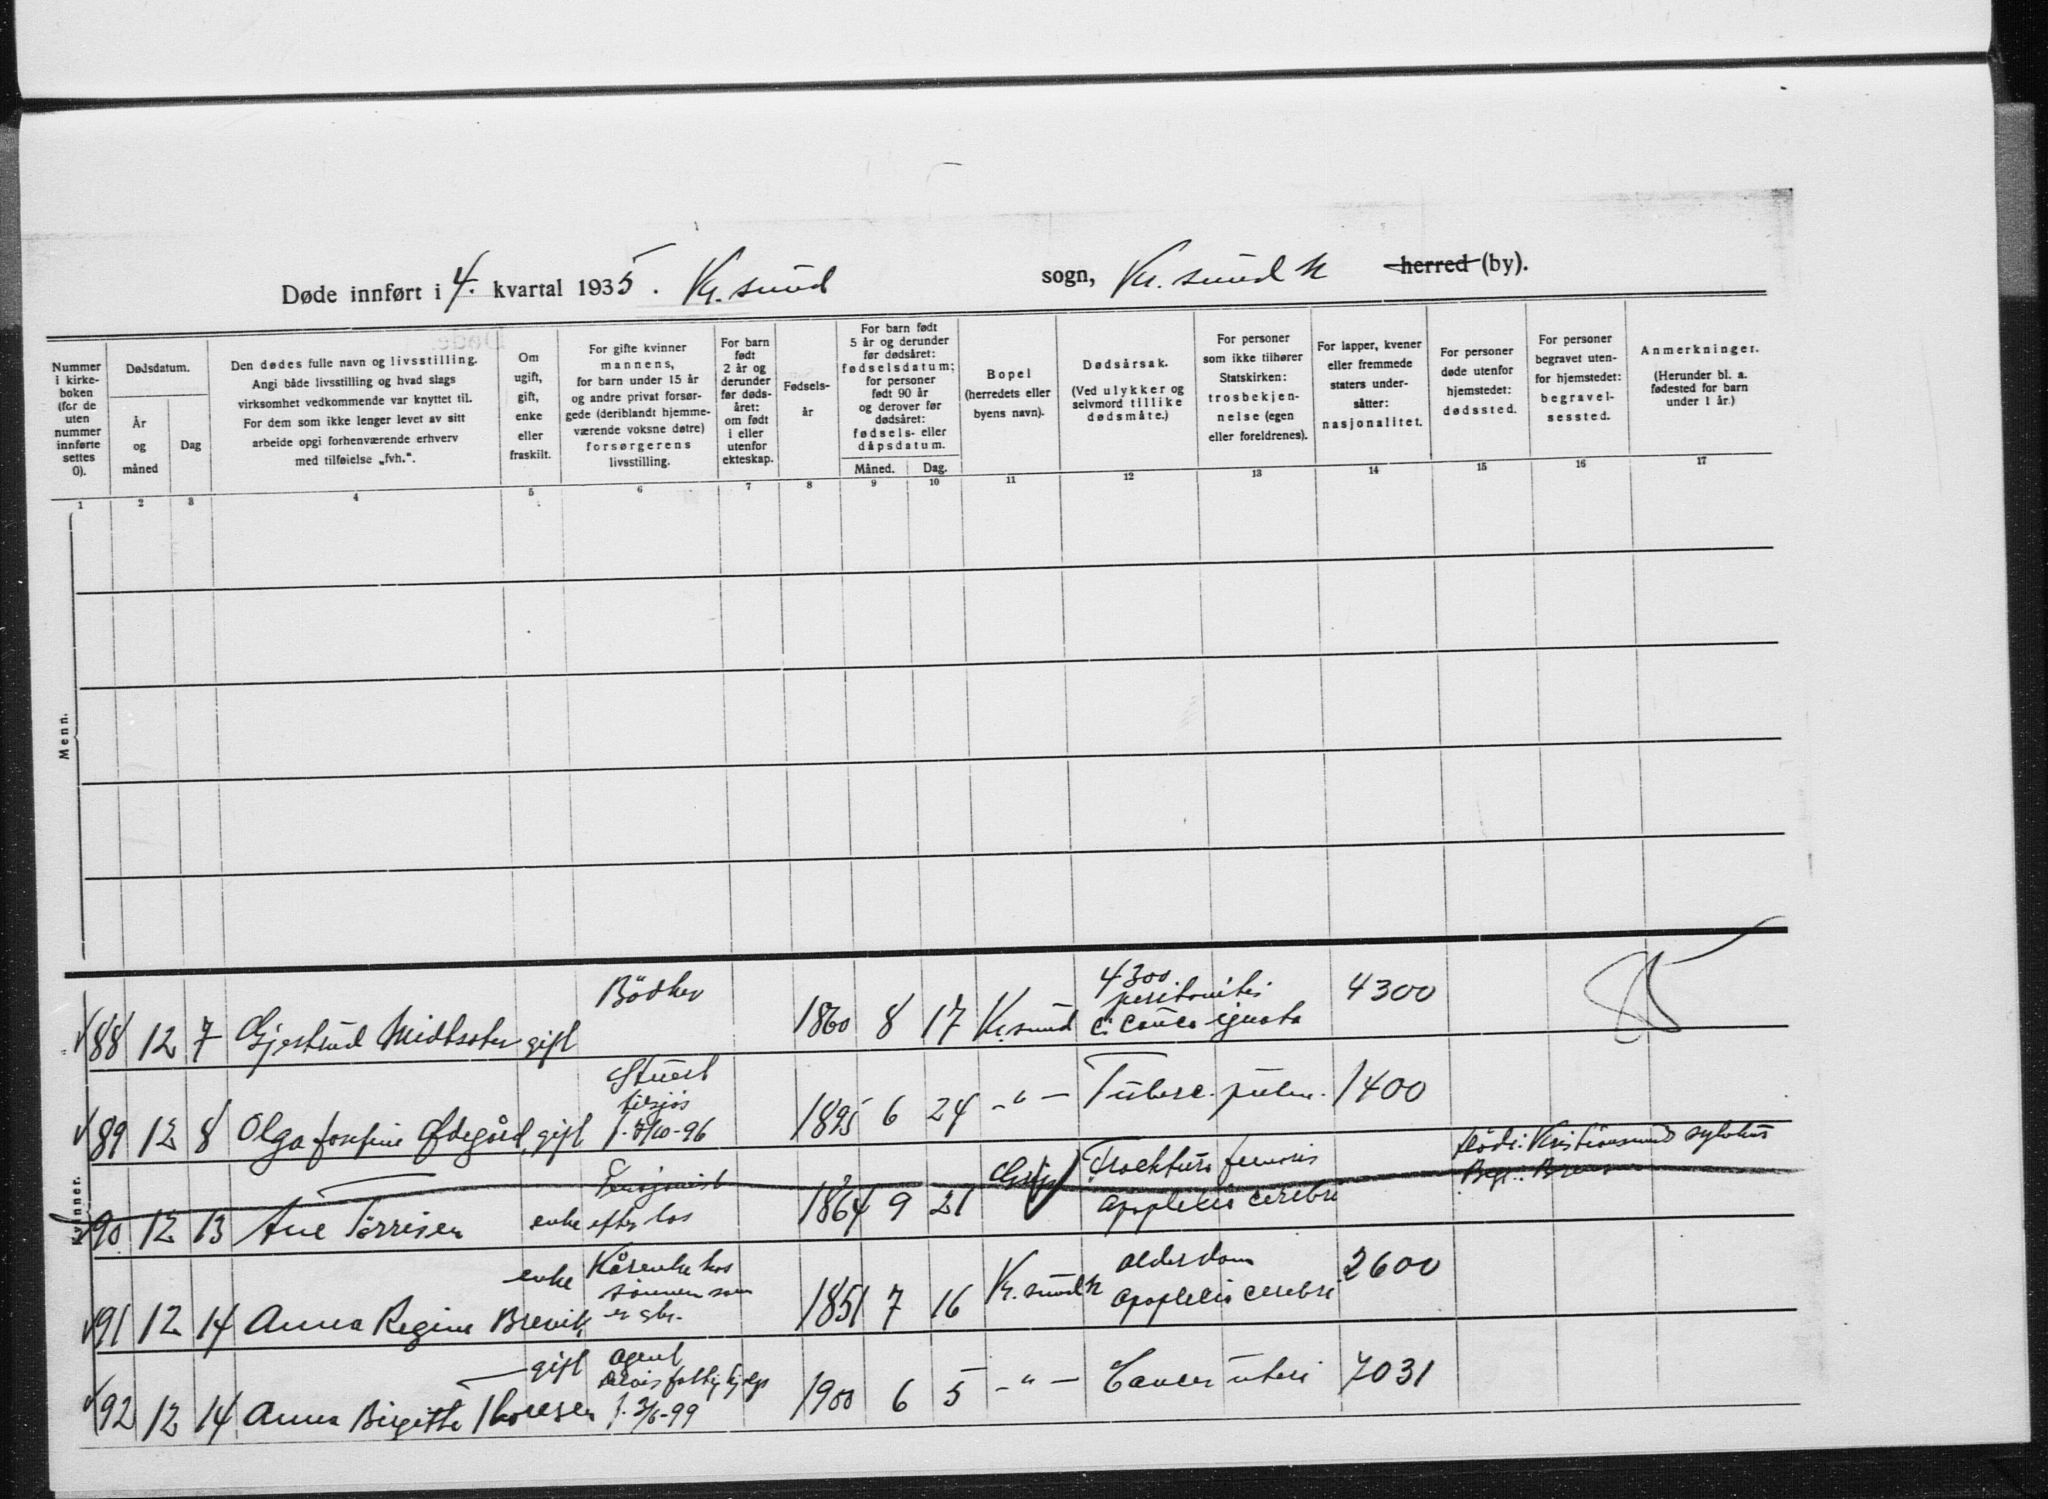 Døde innført i 4. kvartal 1935. Kr. sund sogn, Kr. sund N herred (by).
Nummer i kirke-boken (for de uten nummer innførte settes 0).
Dødsdatum.
År og måned
Dag
Den dødes fulle navn og livsstilling. Angi både livsstilling og hvad slags virksomhet vedkommende var knyttet til. For dem som ikke lenger levet av sitt arbeide opgi forhenværende erhverv med tilføielse „fvh.“.
Om ugift, gift, enke eller fraskilt.
For gifte kvinner mannens, for barn under 15 år og andre privat forsør-gede (deriblandt hjemme-værende voksne døtre) forsørgerens livsstilling.
For barn født 2 år og derunder før døds-året: om født i eller utenfor ekteskap.
Fødsels-år
For barn født 5 år og derunder før dødsåret: fødselsdatum; for personer født 90 år og derover før dødsåret: fødsels- eller dåpsdatum.
Måned. Dag.
Bopel (herredets eller byens navn).
Dødsårsak. (Ved ulykker og selvmord tillike dødsmåte.)
For personer som ikke tilhører Statskirken: trosbekjen-nelse (egen eller foreldrenes).
For lapper, kvener eller fremmede staters under-såtter: nasjonalitet.
For personer døde utenfor hjemstedet: dødssted.
For personer begravet uten-for hjemstedet: begravel-sessted.
Anmerkninger. (Herunder bl. a. fødested for barn under 1 år.)
1 2 3 4 5 6 7 8 9 10 11 12 13 14 15 16 17
Menn.
Kvinner.
88 12 7 Gjertrud Midtsæter gift Bödker 1860 8 17 Kr.sund 4300 peritonitis c. causa ignota 4300
89 12 8 Olga Josefine Ødegård, gift Stuert tilsjøs f. 7/10-96 1895 6 24 -"- Tuberc. pulm. 1400
90 12 13 Ane Tørrisen enke efter los 1864 9 21 Grip Fracktura femoris apoplexia cerebri Död i Kristiansund sykehus
91 12 14 Anna Regine Brevik enke Kårenke hos sønnen som er gbr. 1851 7 16 Kr. sund N Alderdom Apoplexia cerebri 2600
92 12 14 Anna Birgitte Thoresen gift agent f. 3/6-99 1900 6 5 -"- Cancer uteri 7031